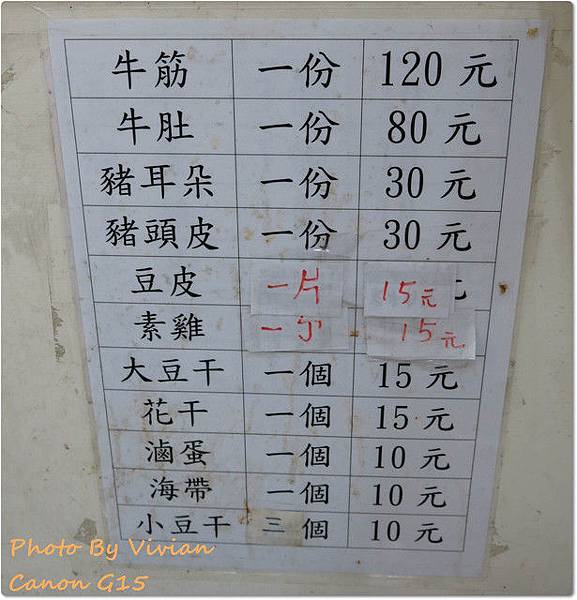 牛筋 一份 120 元
牛肚 一份 80 元
豬耳朵 一份 30 元
豬頭皮 一份 30 元
豆皮 一片 15元
素雞 一 15元
大豆干 一個 15 元
花干 一個 15 元
滷蛋 一個 10 元
海帶 一個 10 元
小豆干 三個 10 元
Photo By Vivian
Canon G15